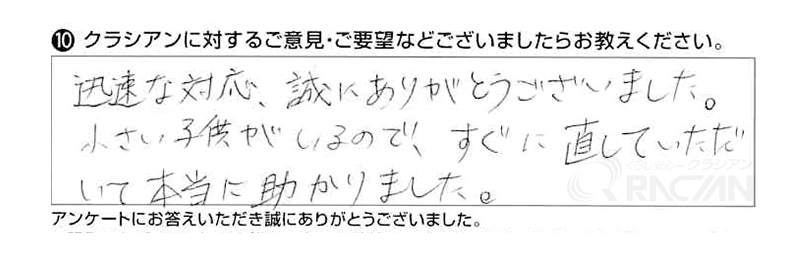 ⑩ クラシアンに対するご意見・ご要望などございましたらお教えください。
迅速な対応、誠にありがとうございました。
小さい子供がいるので、すぐに直していただ
いて本当に助かりました。
くらし安心クラシアン
QRACIAN
アンケートにお答えいただき誠にありがとうございました。